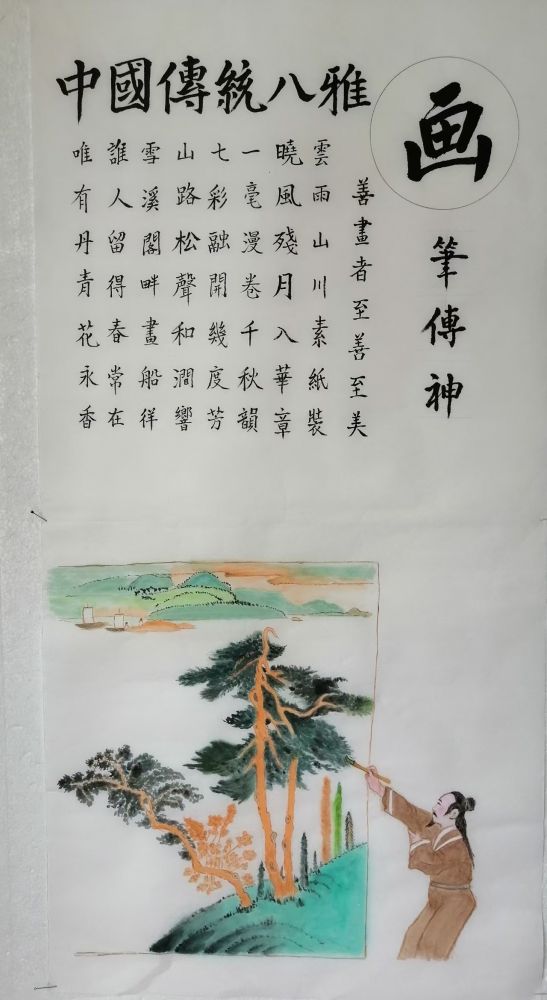 中國傳統八雅
画
筆傳神
善畫者至善至美
雲雨山川素紙裝
曉風殘月入華章
一毫漫卷千秋韻
七彩融開幾度芳
山路松聲和澗響
雪溪閣畔畫船徉
誰人留得春常在
唯有丹青花永香